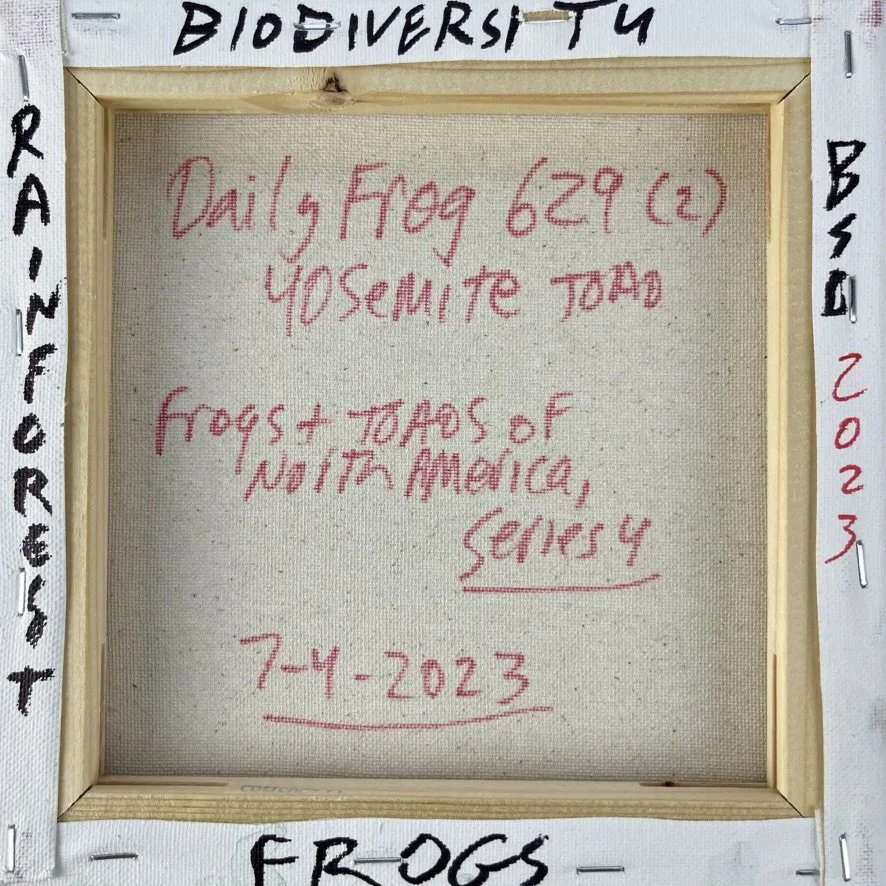 BIODIVERSITY
RAINFOREST
Daily Frog 629 (2)
YOSEMITE TOAD
Frogs + TOADS OF
NORTH AMERICA,
Series 4
7-4-2023
BSD 2023
FROGS